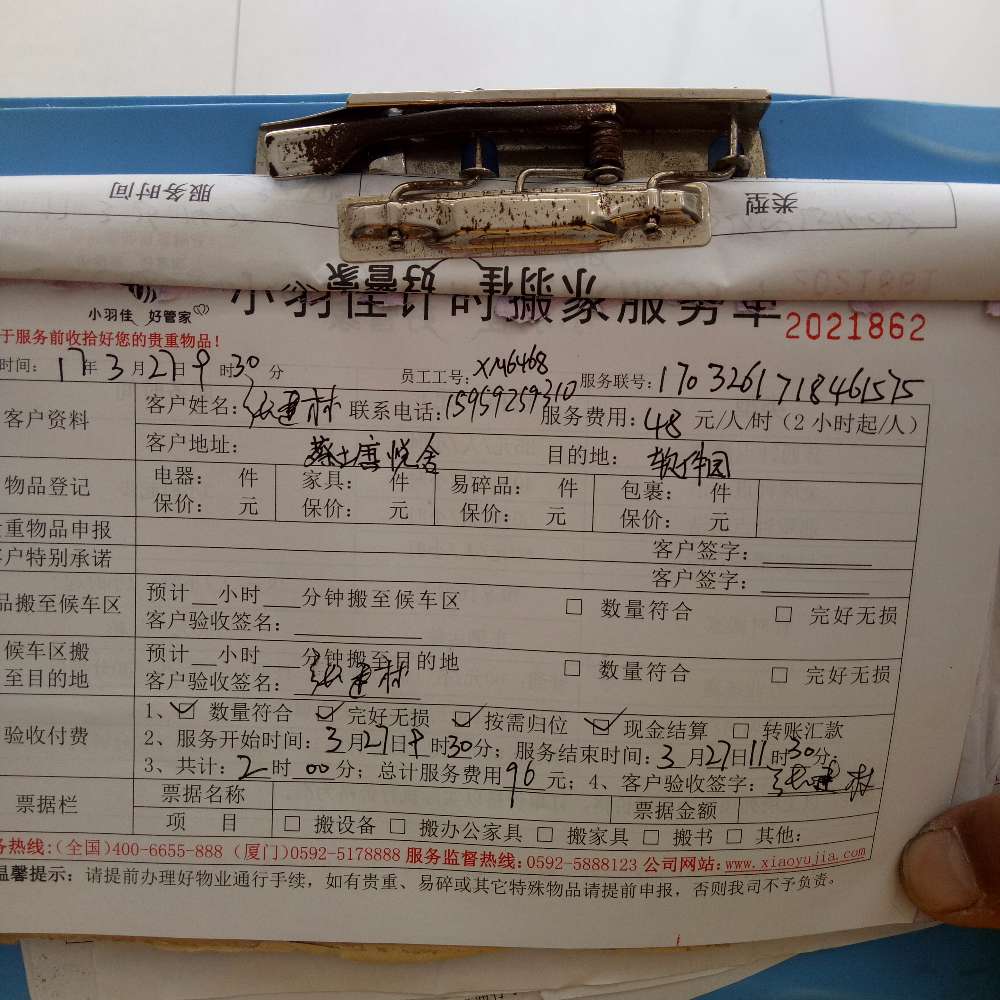 服务时间
类型
小羽佳 好管家
小羽佳计时搬家服务单
2021862
于服务前收拾好您的贵重物品！
时间：17年3月27日9时30分 员工工号：XM6468 服务联号：1703261718461575
客户资料 客户姓名：张建林 联系电话：15959259310 服务费用：48元/人/时（2小时起/人）
客户地址：蔡塘唐悦舍 目的地：软件园
物品登记 电器： 件 家具： 件 易碎品： 件 包裹： 件
保价： 元 保价： 元 保价： 元 保价： 元
重物品申报 客户签字：
户特别承诺 客户签字：
品搬至候车区 预计__小时___分钟搬至候车区 □ 数量符合 □ 完好无损
客户验收签名：
候车区搬至目的地 预计__小时___分钟搬至目的地 □ 数量符合 □ 完好无损
客户验收签名：张建林
验收付费 1、☑ 数量符合 ☑ 完好无损 ☑ 按需归位 ☑ 现金结算 □ 转账汇款
2、服务开始时间：3月27日9时30分；服务结束时间：3月27日11时30分；
3、共计：2时00分；总计服务费用96元；4、客户验收签字：张建林
票据栏 票据名称 票据金额
项 目 □ 搬设备 □ 搬办公家具 □ 搬家具 □ 搬书 □ 其他：
务热线：(全国)400-6655-888 (厦门)0592-5178888 服务监督热线：0592-5888123 公司网站：www.xiaoyujia.com
温馨提示：请提前办理好物业通行手续，如有贵重、易碎或其它特殊物品请提前申报，否则我司不予负责。